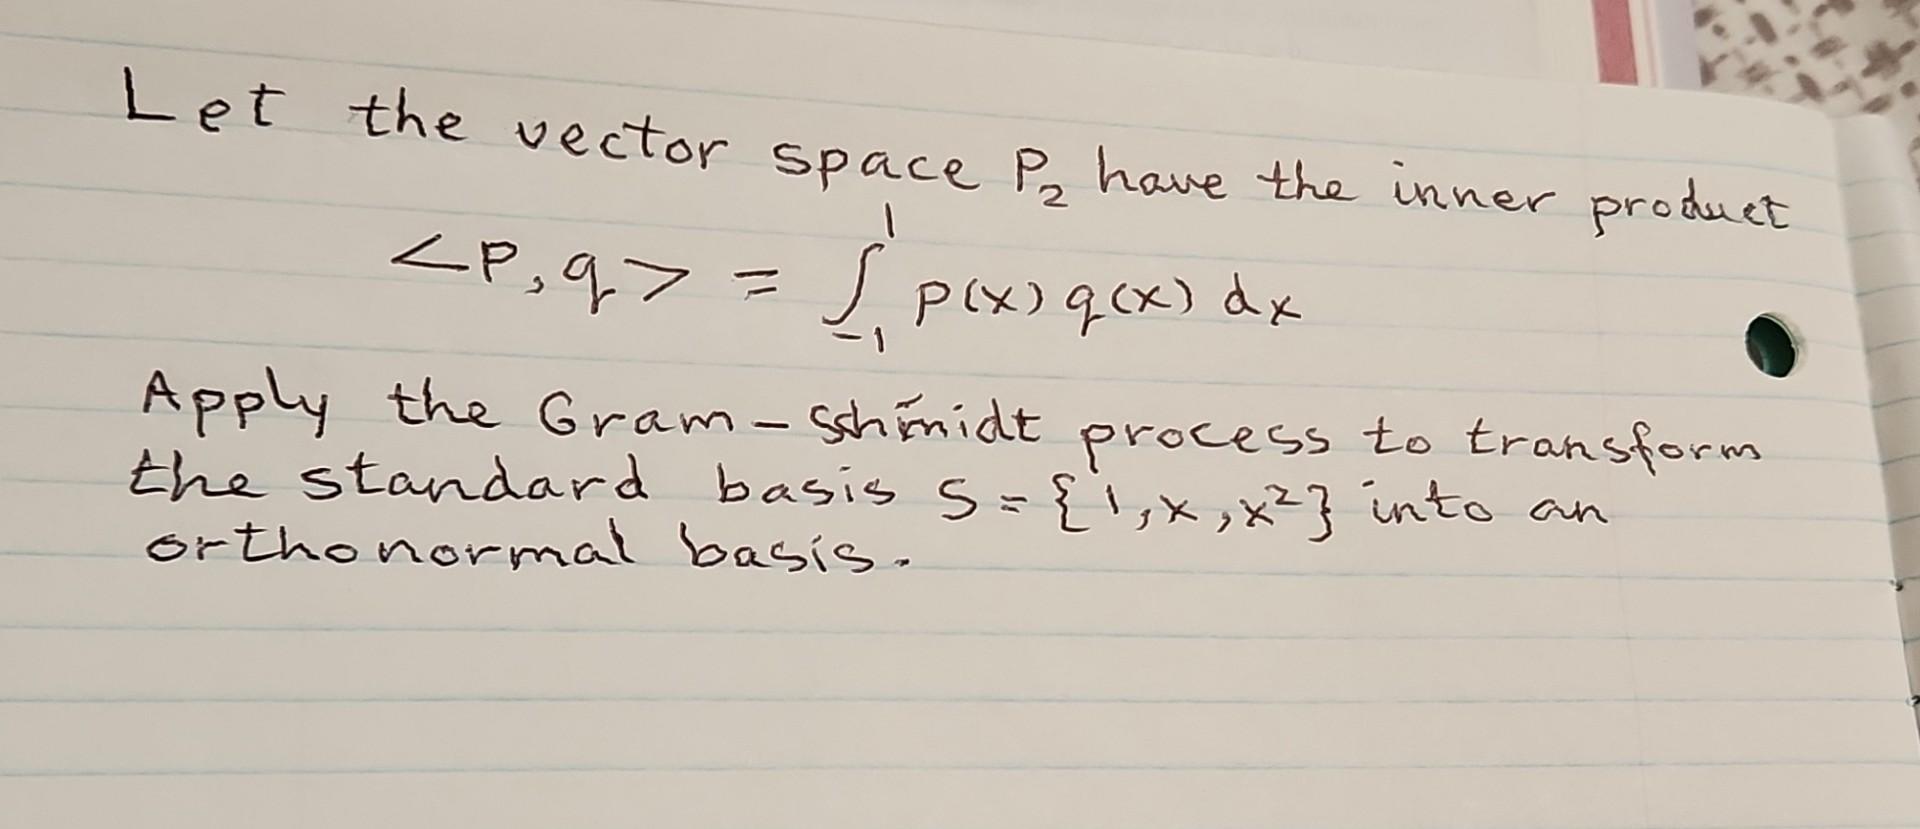 Let the vector space P₂ have the inner product
<p,q> = ∫₋₁¹ p(x) q(x) dx
Apply the Gram-Schmidt process to transform
the standard basis S = {1,x,x²} into an
orthonormal basis.